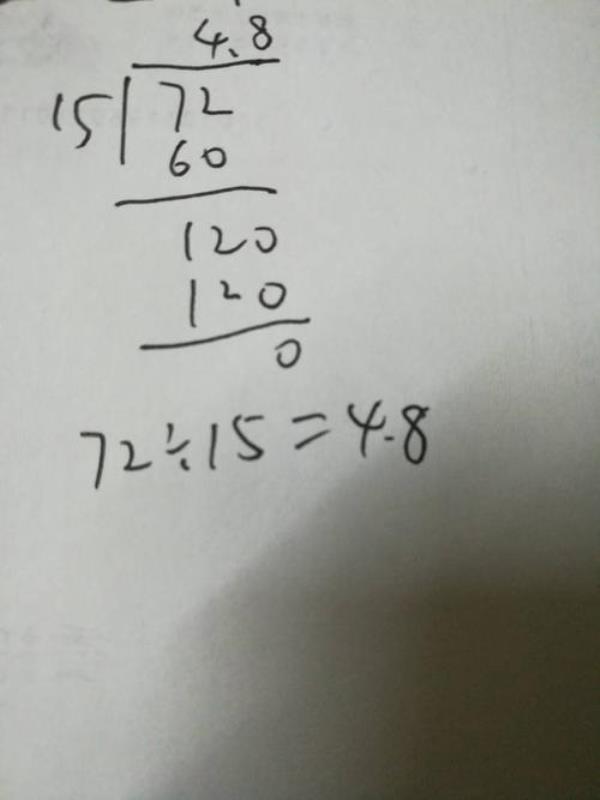 4.8
15 72
60
120
120
0
72÷15=4.8